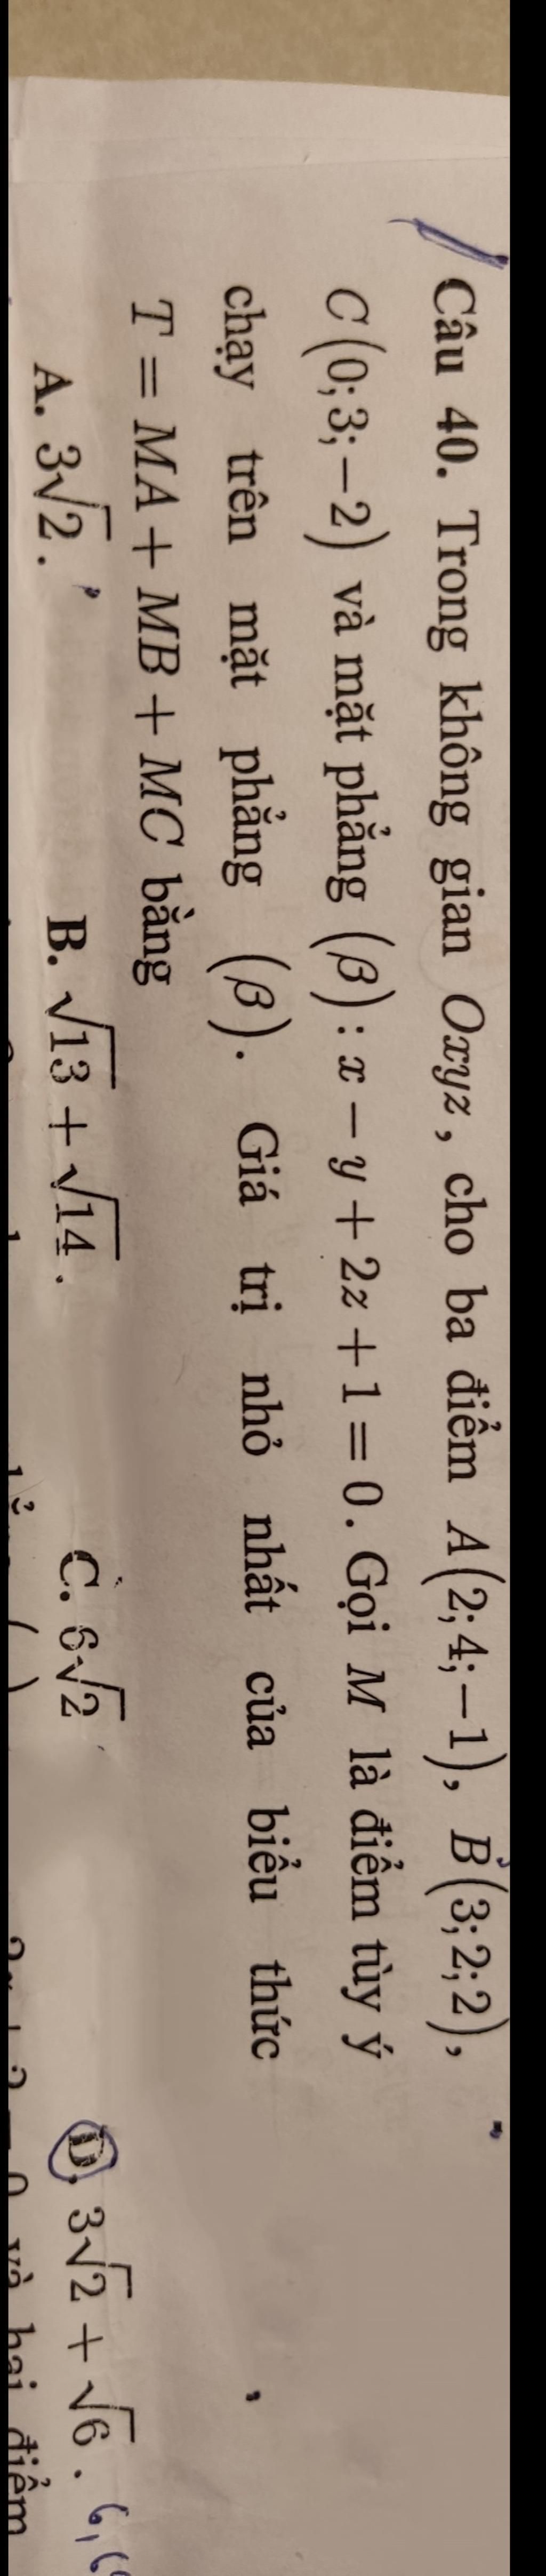 Câu 40. Trong không gian Oxyz, cho ba điểm A(2;4;−1), B(3;2;2),
C(0;3;−2) và mặt phẳng (β): x − y + 2z + 1 = 0. Gọi M là điểm tùy ý
chạy trên mặt phẳng (β). Giá trị nhỏ nhất của biểu thức
T = MA + MB + MC bằng
A. 3√2. B. √13 + √14. C. 6√2 D. 3√2 + √6.
và hai điểm